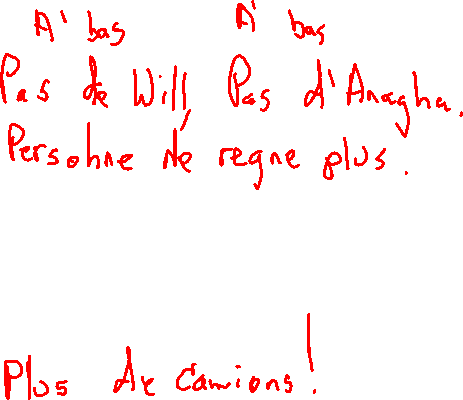 A' bas A' bas
Pas de Will, Pas d'Anagha.
Personne Ne regne plus.
Plus de Camions!